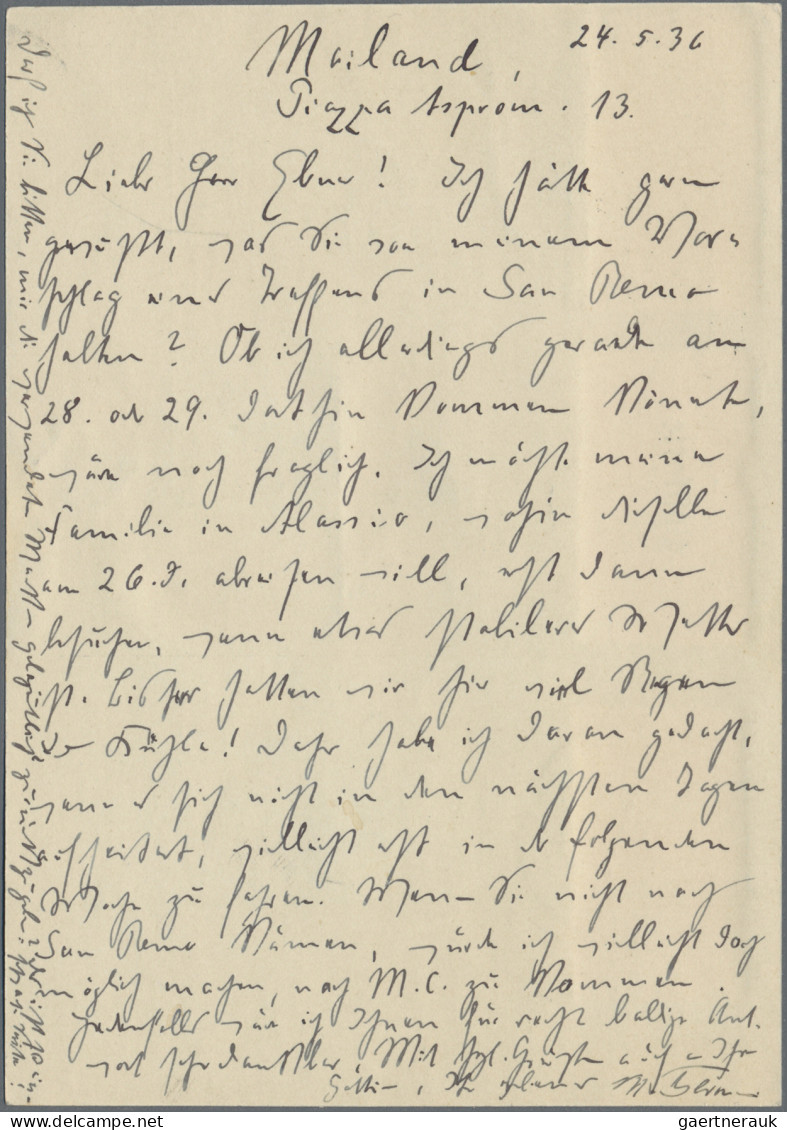 Mailand, 24.5.36
Piazza Aspromo. 13.
Lieber Herr Ebner! Ich hätte gern
gewußt, was Sie von meinem Vor-
schlag eines Treffens in San Remo
halten? Ob ich allerdings gerade am
28. oder 29. dorthin kommen könnte,
wäre noch fraglich. Ich möchte meine
Familie in Alassio, wohin dieselbe
am 26.d. abreisen will, erst dann
besuchen, wenn etwas stabileres Wetter
ist. Bisher hatten wir hier viel Regen
u Kühle! Daher habe ich daran gedacht,
wenn es sich nicht in den nächsten Tagen
aufheitert, vielleicht erst in der folgenden
Woche zu fahren. Wenn Sie nicht nach
San Remo kämen, würde ich vielleicht doch
möglich machen, nach M.C. zu kommen.
Jedenfalls wäre ich Ihnen für recht baldige Ant-
wort sehr dankbar. Mit hzl. Grüßen auch an Ihre
Gattin, Ihr
Darf ich Sie bitten, mir die gelegentlich zurückzugeben?
gaertnerauk